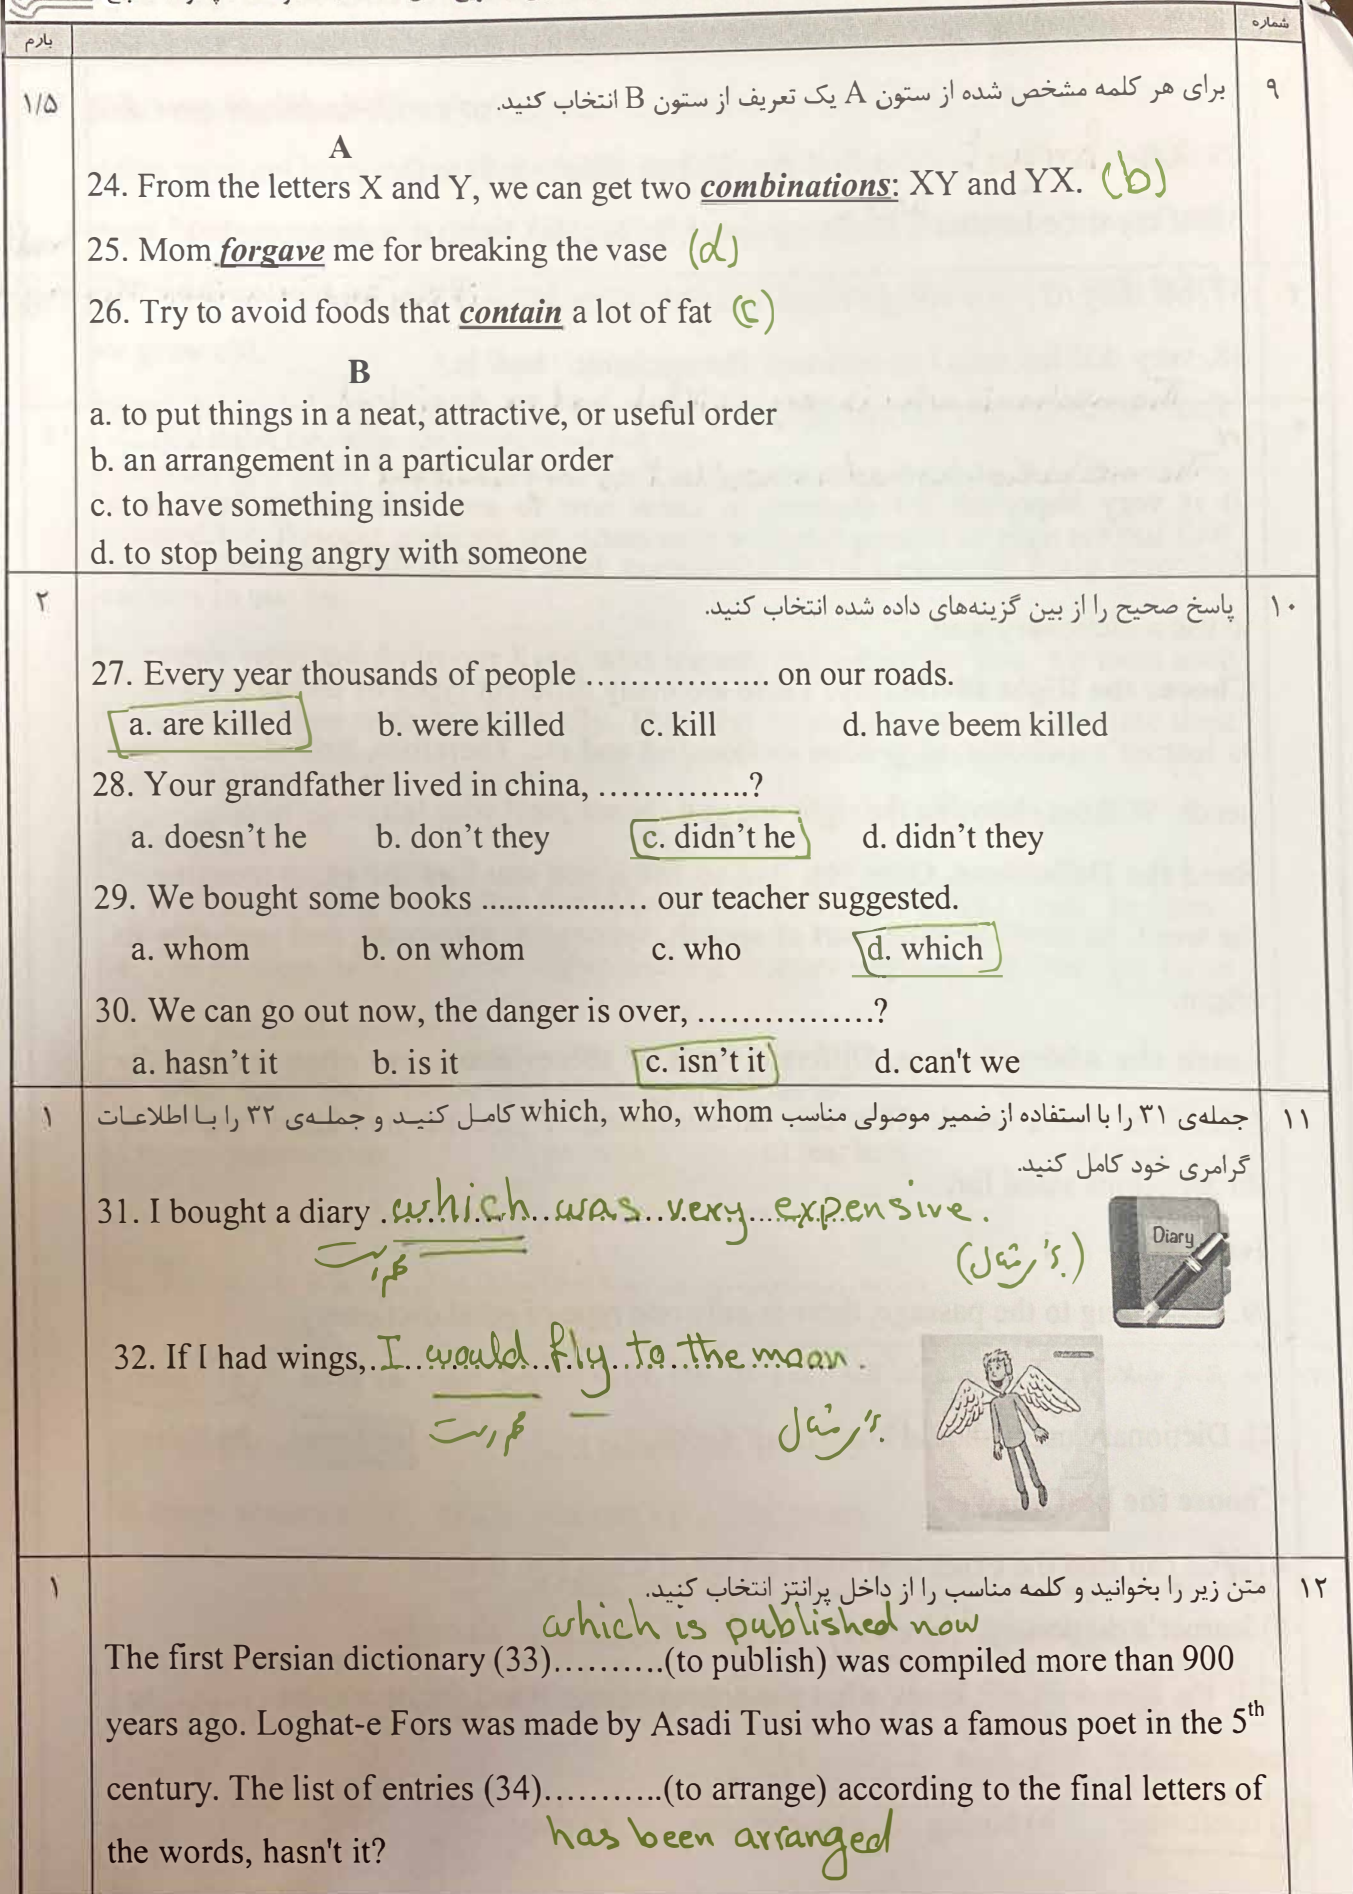 شماره
بارم
۹ برای هر کلمه مشخص شده از ستون A یک تعریف از ستون B انتخاب کنید. ۱/۵
A
24. From the letters X and Y, we can get two combinations: XY and YX. (b)
25. Mom forgave me for breaking the vase (d)
26. Try to avoid foods that contain a lot of fat (c)
B
a. to put things in a neat, attractive, or useful order
b. an arrangement in a particular order
c. to have something inside
d. to stop being angry with someone
۱۰ پاسخ صحیح را از بین گزینه‌های داده شده انتخاب کنید. ۲
27. Every year thousands of people ................. on our roads.
a. are killed b. were killed c. kill d. have beem killed
28. Your grandfather lived in china, ..............?
a. doesn't he b. don't they c. didn't he d. didn't they
29. We bought some books .................. our teacher suggested.
a. whom b. on whom c. who d. which
30. We can go out now, the danger is over, ................?
a. hasn't it b. is it c. isn't it d. can't we
۱۱ جمله‌ی ۳۱ را با استفاده از ضمیر موصولی مناسب which, who, whom کامل کنید و جمله‌ی ۳۲ را با اطلاعات ۱
گرامری خود کامل کنید.
31. I bought a diary which was very expensive.
Diary
32. If I had wings, I would fly to the moon.
۱۲ متن زیر را بخوانید و کلمه مناسب را از داخل پرانتز انتخاب کنید. ۱
which is published now
The first Persian dictionary (33)..........(to publish) was compiled more than 900
years ago. Loghat-e Fors was made by Asadi Tusi who was a famous poet in the 5th
century. The list of entries (34)...........(to arrange) according to the final letters of
has been arranged
the words, hasn't it?